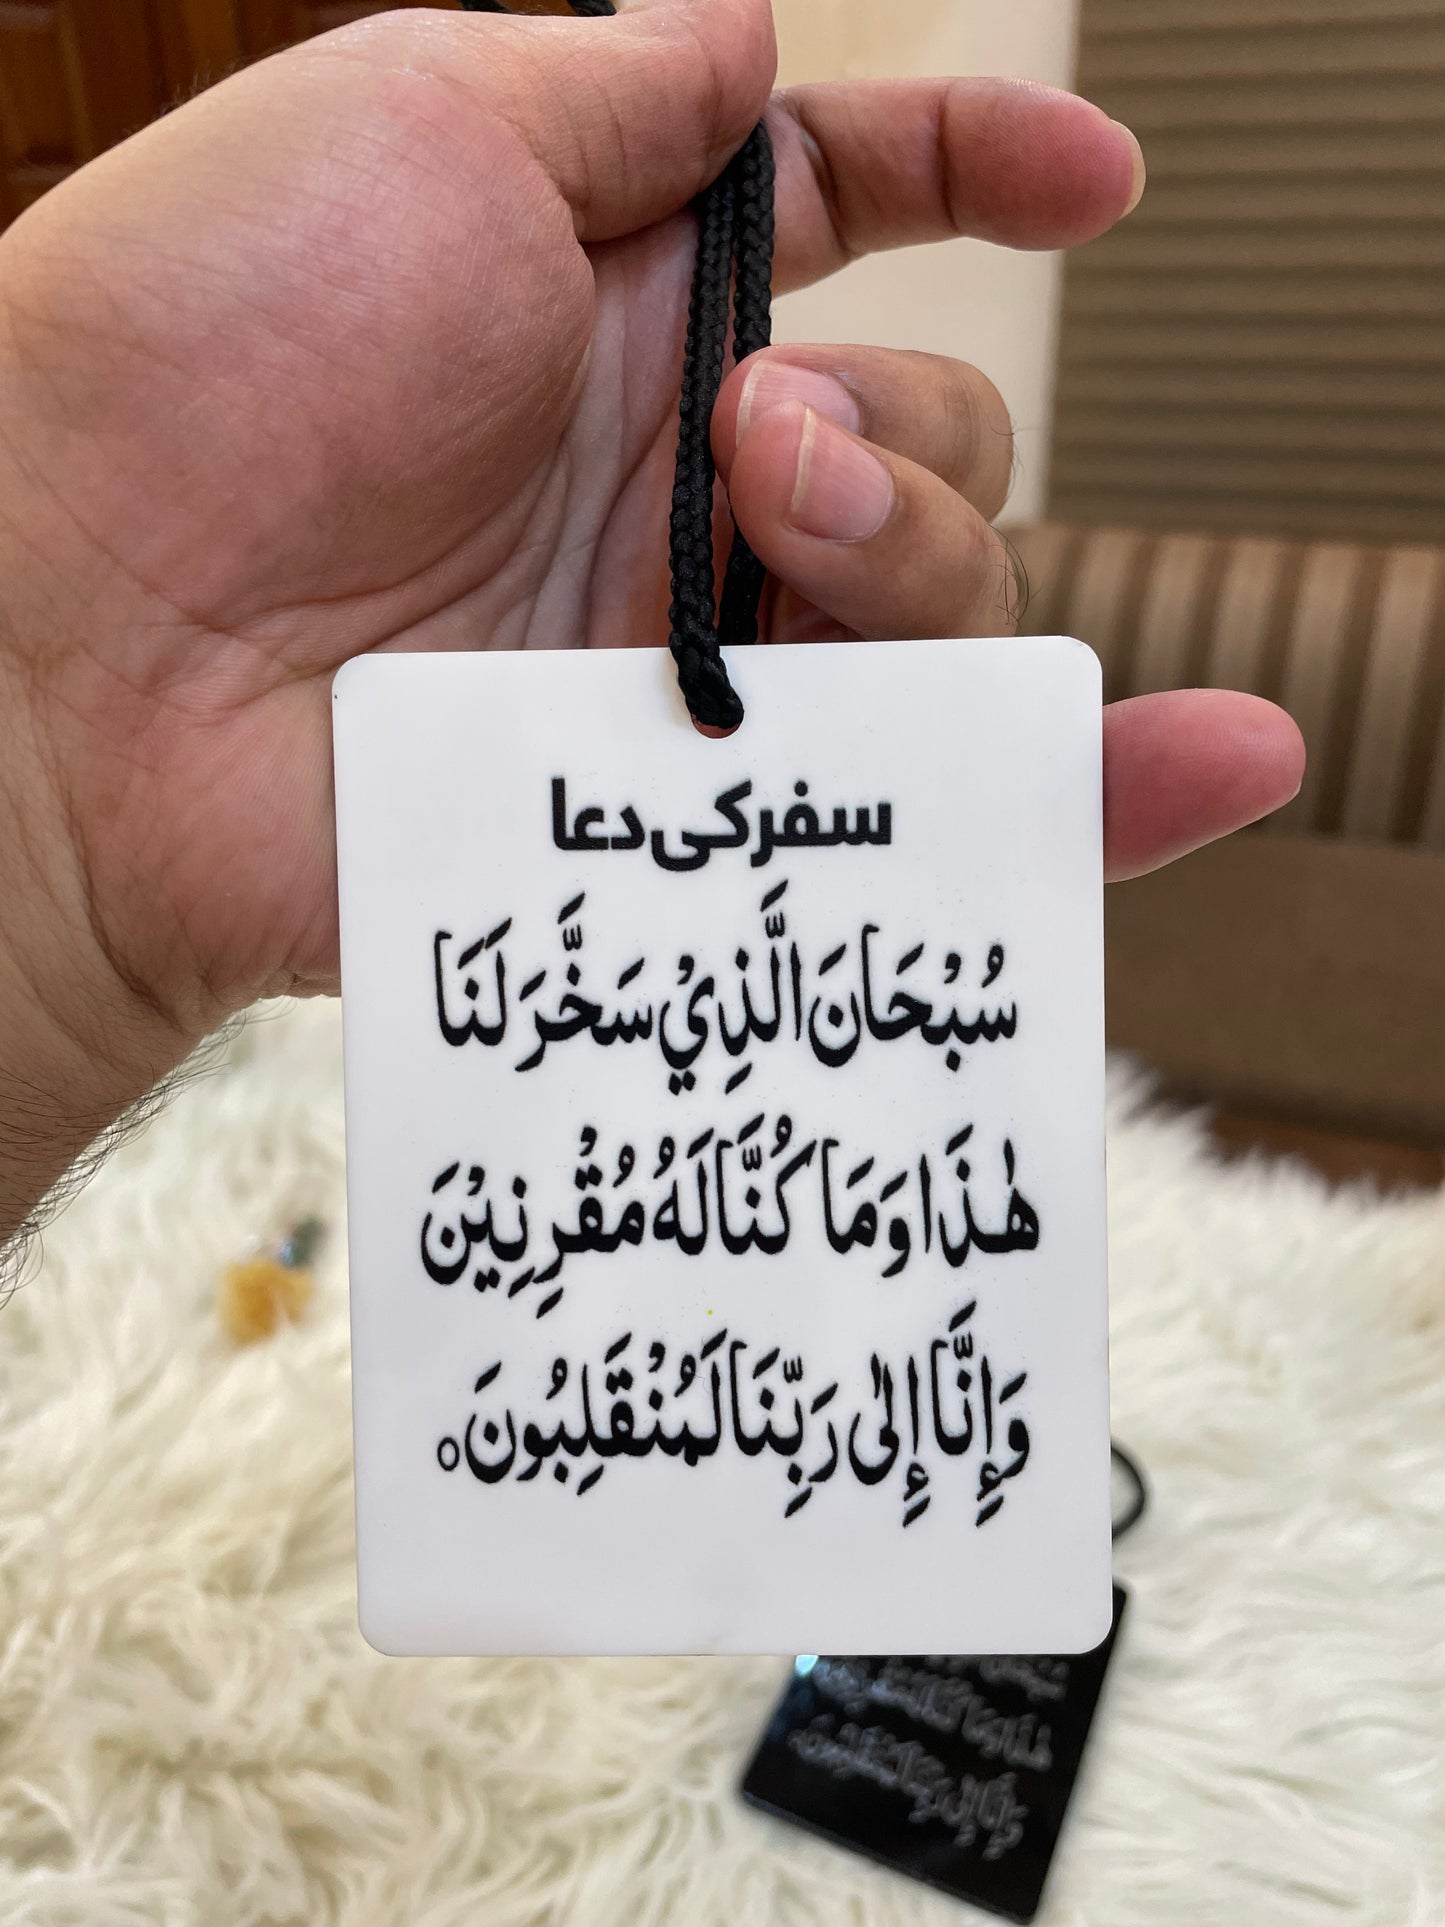 سفر کی دعا
سُبْحَانَ الَّذِيْ سَخَّرَ لَنَا
هٰذَا وَمَا كُنَّا لَهُ مُقْرِنِيْنَ
وَإِنَّا إِلىٰ رَبِّنَا لَمُنْقَلِبُونَ○